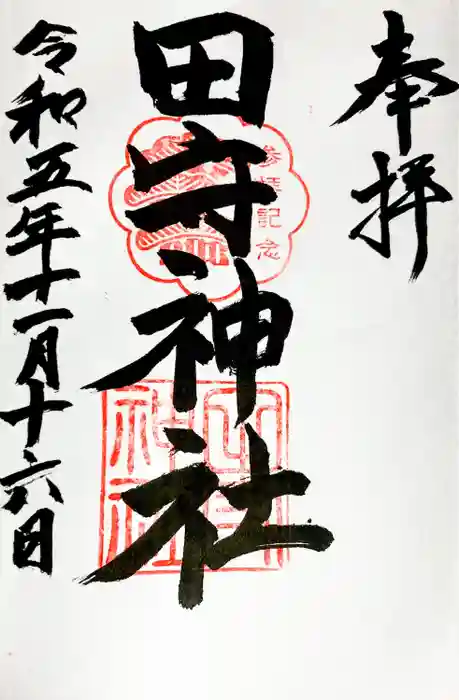 奉拝
田守神社
参拝記念
令和五年十一月十六日